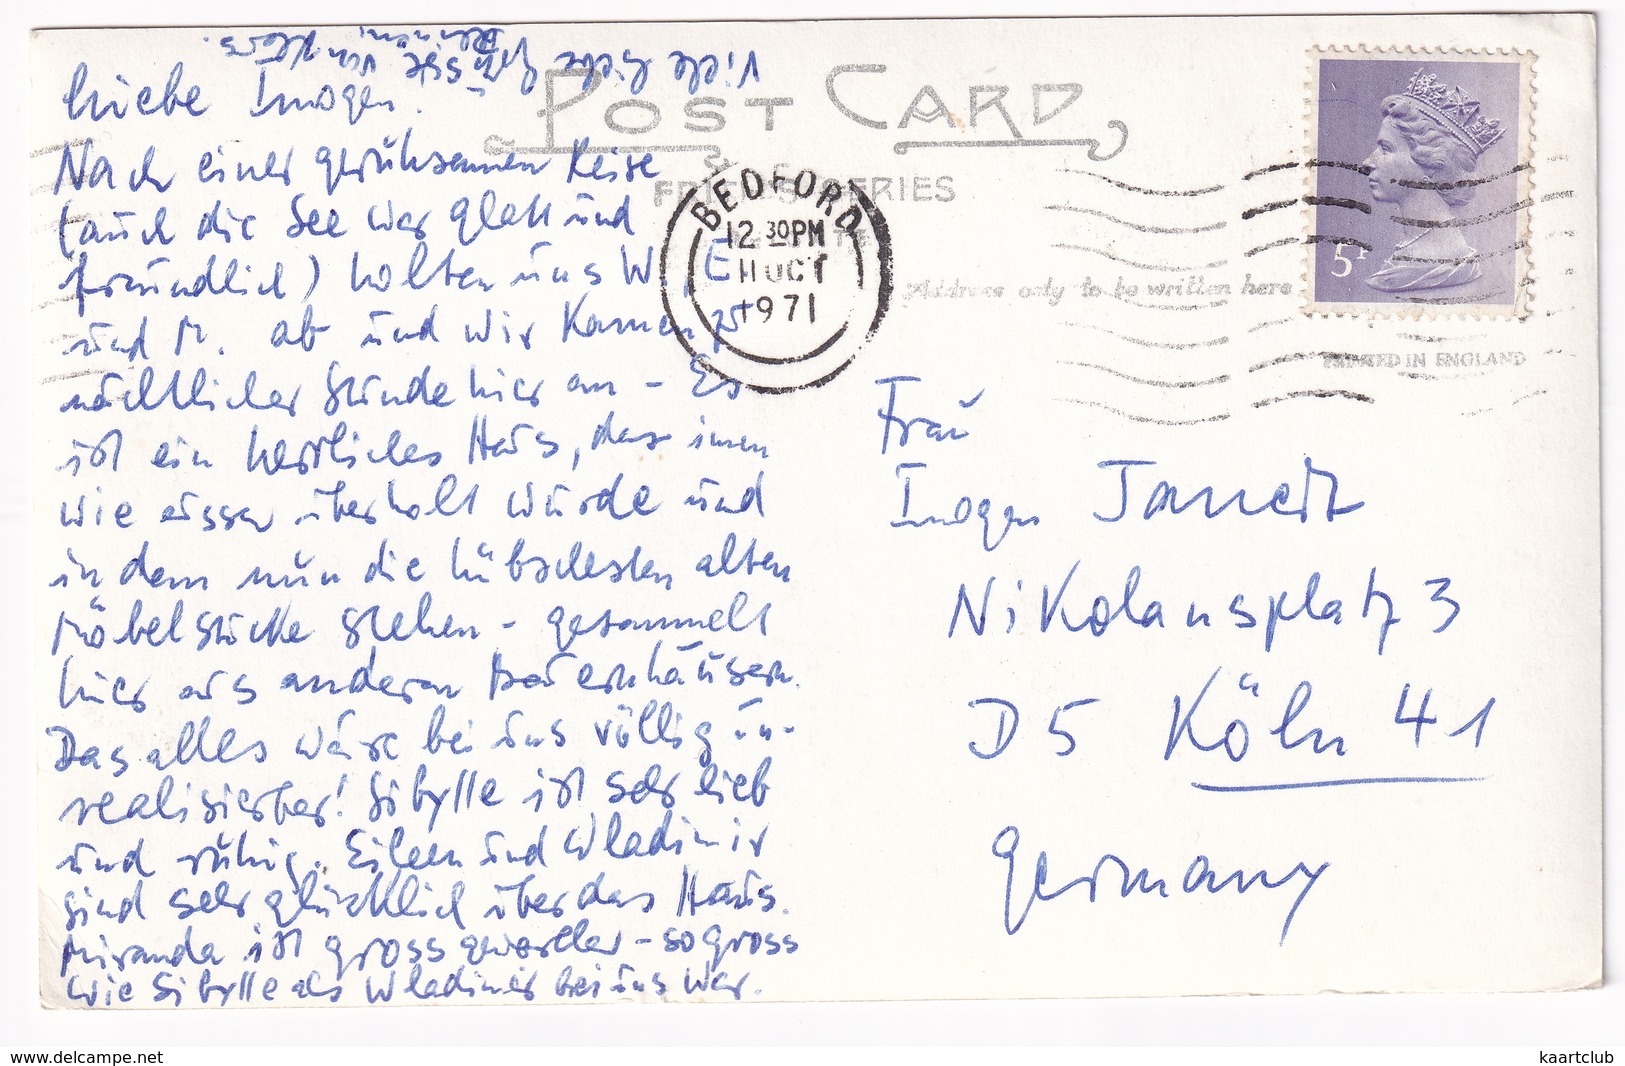 Liebe Imogen.
Nach einer geruhsamen Reise
(auch die See war glatt und
freundlich) holten uns W, E
und M. ab und wir kamen zu
nächtlicher Stunde hier an - Es
ist ein herrliches Haus, das innen
wie aussen überholt wurde und
in dem nun die hübschesten alten
Möbelstücke stehen - gesammelt
hier aus anderen Bauernhäusern.
Das alles wäre bei uns völlig un-
realisierbar! Sibylle ist sehr lieb
und ruhig. Eileen und Wladimir
sind sehr glücklich über das Haus.
Miranda ist gross geworden - so gross
wie Sibylle als Wladimir bei uns war.
Viele liebe Grüsse von
POST CARD
FRITH'S SERIES
BEDFORD
12 30 PM
11 OCT
1971
Address only to be written here
5P
PRINTED IN ENGLAND
Frau
Imogen
Nikolausplatz 3
D 5 Köln 41
Germany
www.delcampe.net
kaartclub